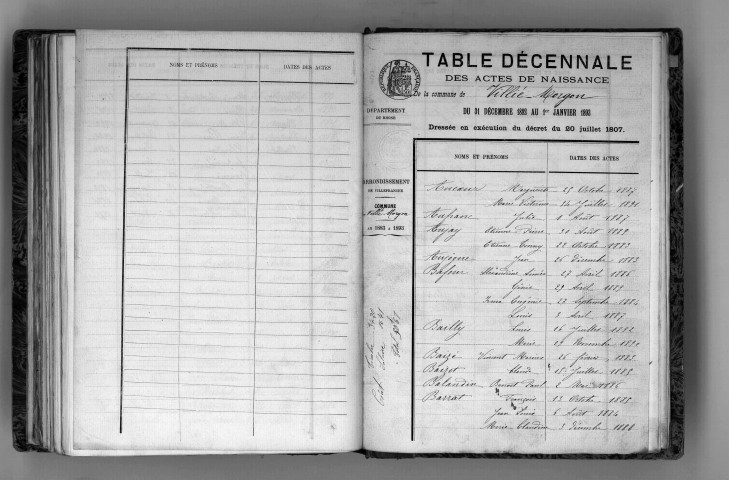 NOMS ET PRÉNOMS DATES DES ACTES
DÉPARTEMENT
DU RHONE
ARRONDISSEMENT
DE VILLEFRANCHE
COMMUNE
Villié-Morgon
DE 1883 A 1893
TABLE DÉCENNALE
DES ACTES DE NAISSANCE
De la commune de Villié-Morgon
DU 31 DÉCEMBRE 1882 AU 1er JANVIER 1893
Dressée en exécution du décret du 20 juillet 1807.
NOMS ET PRÉNOMS DATES DES ACTES
Aucour 25 Octobre 1887
Marie 14 Juillet 1891
Aufran Julie Août 1887
Aujay Etienne 30 Août 1889
Etienne 22 Octobre 1883
Aujogue Jean 26 Décembre 1883
27 Avril 1886
29 Avril 1889
Eugénie 23 Septembre 1884
Louis 3 Avril 1887
Bailly Louis 16 Juillet 1892
Marie 19 Novembre 1890
Baizé Vincent Marius 26 février 1883
Baizet Claude 18 Juillet 1885
Balandin Benoît Paul 2 1886
Barrat François 13 Octobre 1885
Jean Louis 6 Août 1884
Marie Claudine 3 Décembre 1888